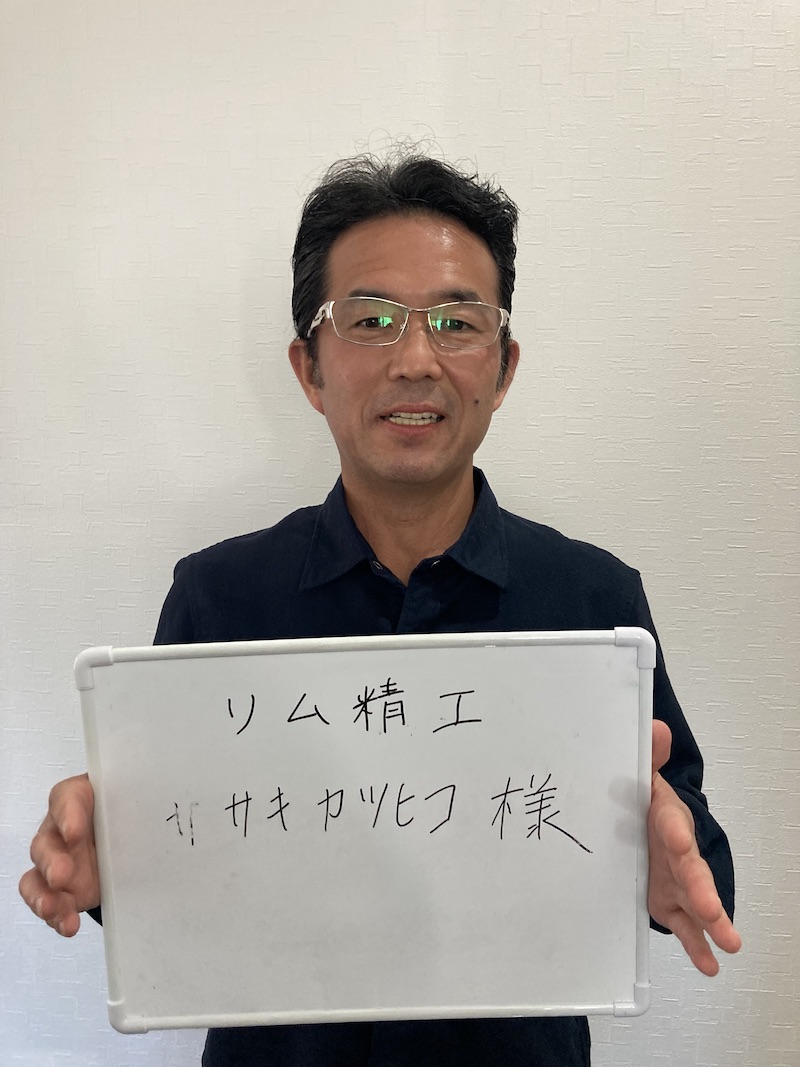 リム精工
ササキ カツヒコ 様